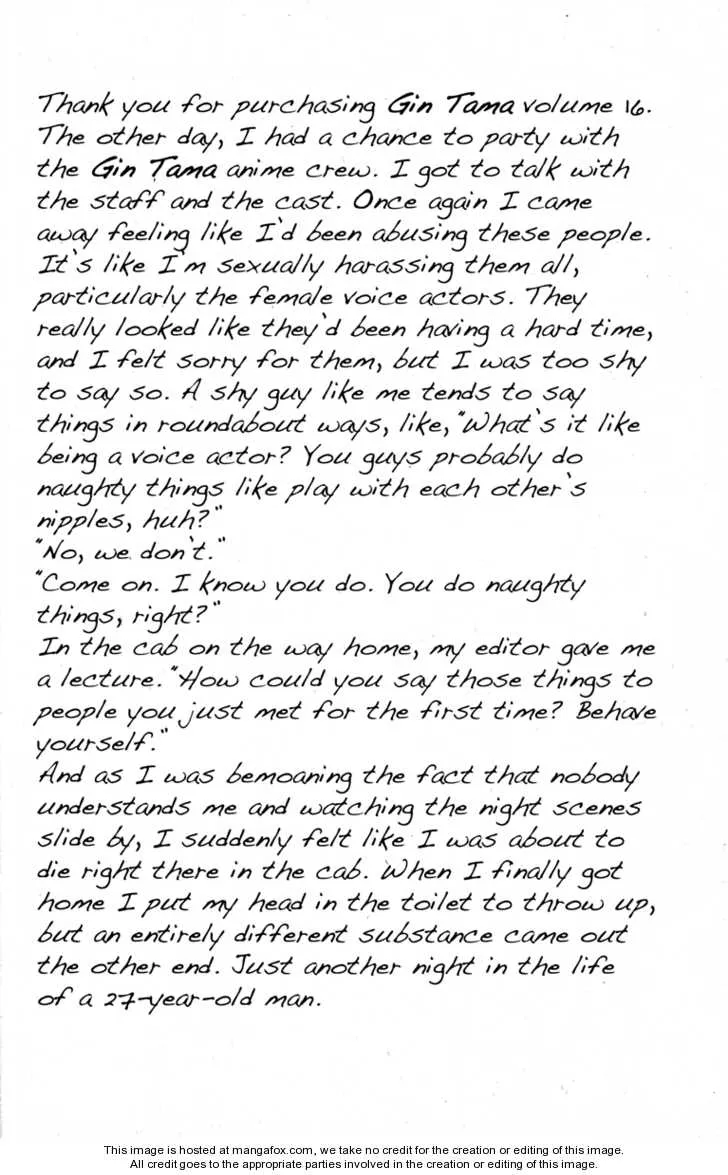 Thank you for purchasing Gin Tama volume 16.
The other day, I had a chance to party with
the Gin Tama anime crew. I got to talk with
the staff and the cast. Once again I came
away feeling like I'd been abusing these people.
It's like I'm sexually harassing them all,
particularly the female voice actors. They
really looked like they'd been having a hard time,
and I felt sorry for them, but I was too shy
to say so. A shy guy like me tends to say
things in roundabout ways, like, "What's it like
being a voice actor? You guys probably do
naughty things like play with each other's
nipples, huh?"
"No, we don't."
"Come on. I know you do. You do naughty
things, right?"
In the cab on the way home, my editor gave me
a lecture. "How could you say those things to
people you just met for the first time? Behave
yourself."
And as I was bemoaning the fact that nobody
understands me and watching the night scenes
slide by, I suddenly felt like I was about to
die right there in the cab. When I finally got
home I put my head in the toilet to throw up,
but an entirely different substance came out
the other end. Just another night in the life
of a 27-year-old man.
This image is hosted at mangafox.com, we take no credit for the creation or editing of this image.
All credit goes to the appropriate parties involved in the creation or editing of this image.